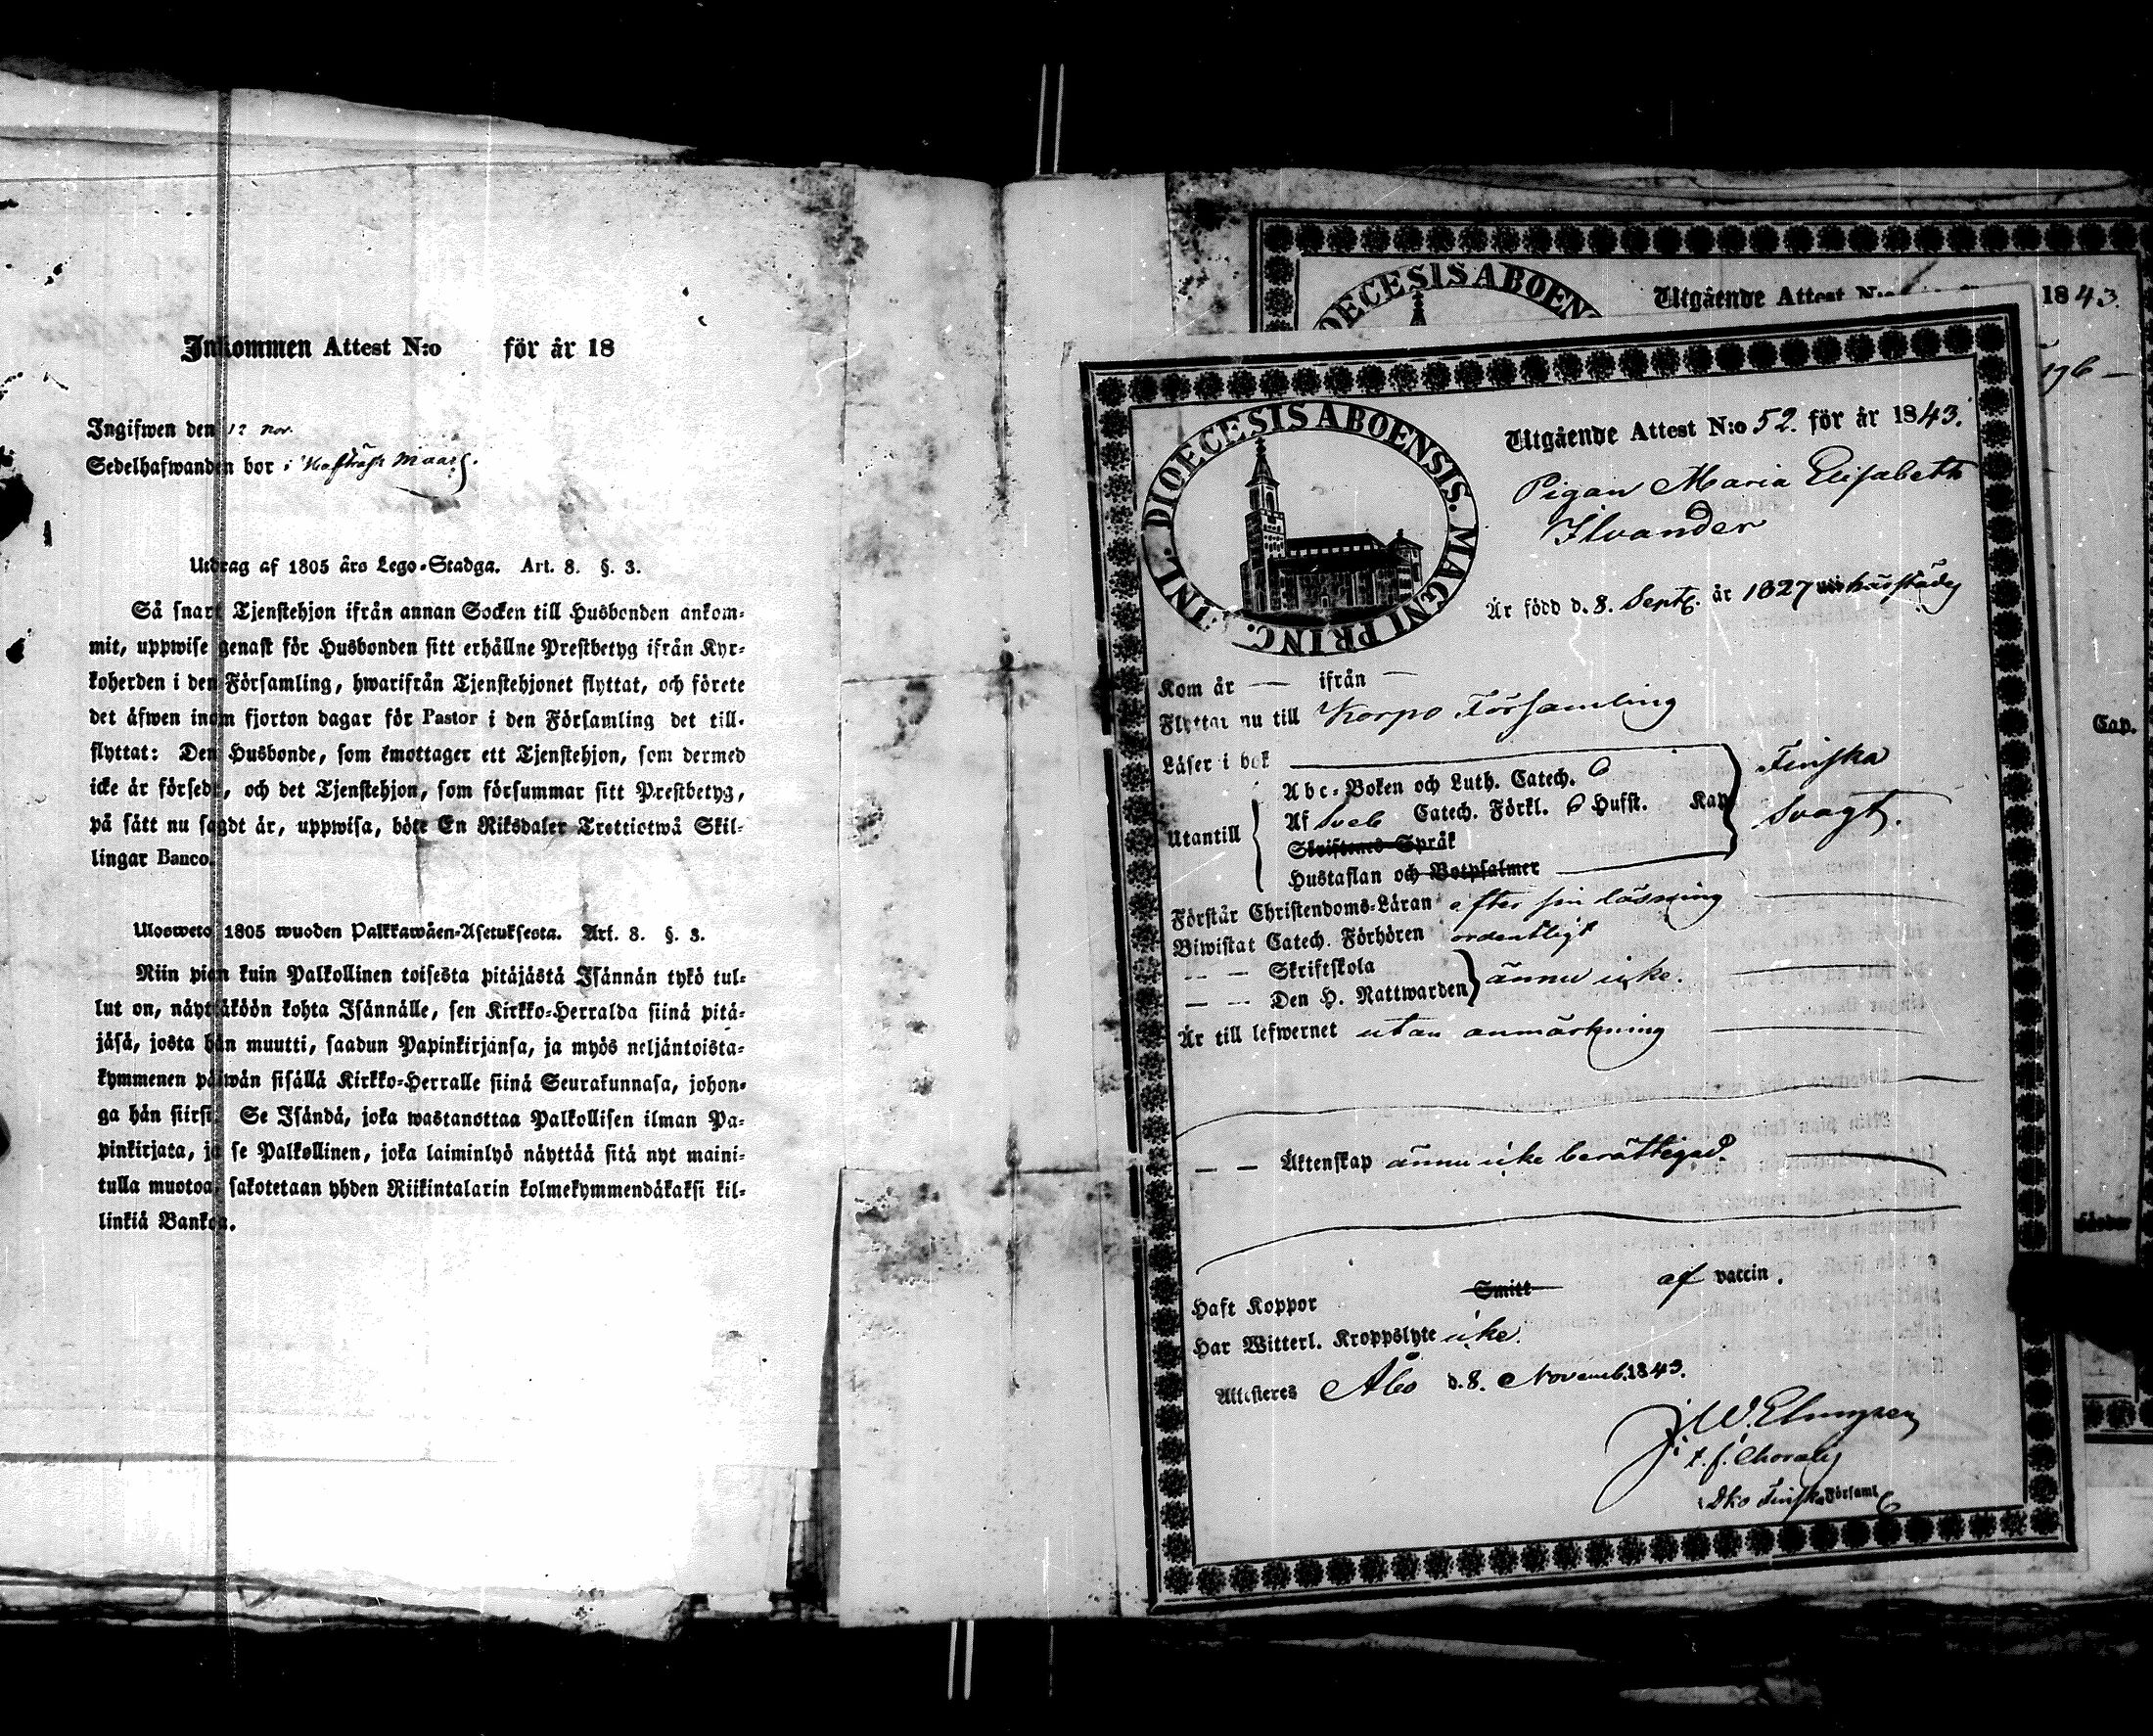 Inkommen Attest N:o för år 18
Ingifwen den 12 nov.
Sedelhafwanden bor i
Utdrag af 1805 års Lego-Stadga. Art. 8. §. 3.
Så snart Tjenstehjon ifrån annan Socken till Husbonden ankom-
mit, uppwise genast för Husbonden sitt erhållne Prestbetyg ifrån Kyr-
koherden i den Församling, hwarifrån Tjenstehjonet flyttat, och förete
det äfwen inom fjorton dagar för Pastor i den Församling det till-
flyttat: Den Husbonde, som emottager ett Tjenstehjon, som dermed
icke är försedt, och det Tjenstehjon, som försummar sitt Prestbetyg,
på sätt nu sagdt är, uppwisa, böte En Riksdaler Trettiotwå Skil-
lingar Banco.
Ulosweto 1805 wuoden Palkkawäen-Asetuksesta. Art. 8. §. 3.
Niin pian kuin Palkollinen toisesta pitäjästä Isännän tykö tul-
lut on, näyttäköön kohta Isännälle, sen Kirkko-Herralda siinä pitä-
jäsä, josta hän muutti, saadun Papinkirjansa, ja myös neljäntoista-
kymmenen päiwän sisällä Kirkko-Herralle siinä Seurakunnasa, johon-
ga hän siirsi. Se Isändä, joka wastanottaa Palkollisen ilman Pa-
pinkirjata, ja se Palkollinen, joka laiminlyö näyttää sitä nyt maini-
tulla muotoa, sakotetaan yhden Riikintalarin kolmekymmendäkaksi kil-
linkiä Bankoa.
DIOECESIS ABOENS
Utgående Attest N:o 1843.
Cap.
DIOECESIS ABOENSIS. MAGNI PRINC. FINL.
Utgående Attest N:o 52. för år 1843.
Pigan Maria Elisabeth
Ilvander
Är född d. 8. Septb. år 1827 härstädes
Kom år — ifrån —
Flyttar nu till Korpo Församling
Läser i bok
Finska
Utantill
Abc-Boken och Luth. Catech.
Af Sveb Catech. Förkl. Husst. Kap
Skriftenes Språk
Hustaflan och Botpsalmer
svagt.
Förstår Christendoms-Läran efter sin läsning
Biwistat Catech. Förhören ordentligt
— — Skriftskola
— — Den H. Nattwarden
ännu icke.
Är till lefwernet utan anmärkning
— — Äktenskap ännu icke berättigad.
Haft Koppor Smitt af vaccin.
Har Witterl. Kroppslyte icke.
Attesteres Åbo d. 8. Novemb. 1843.
t. f.
Finska Församl